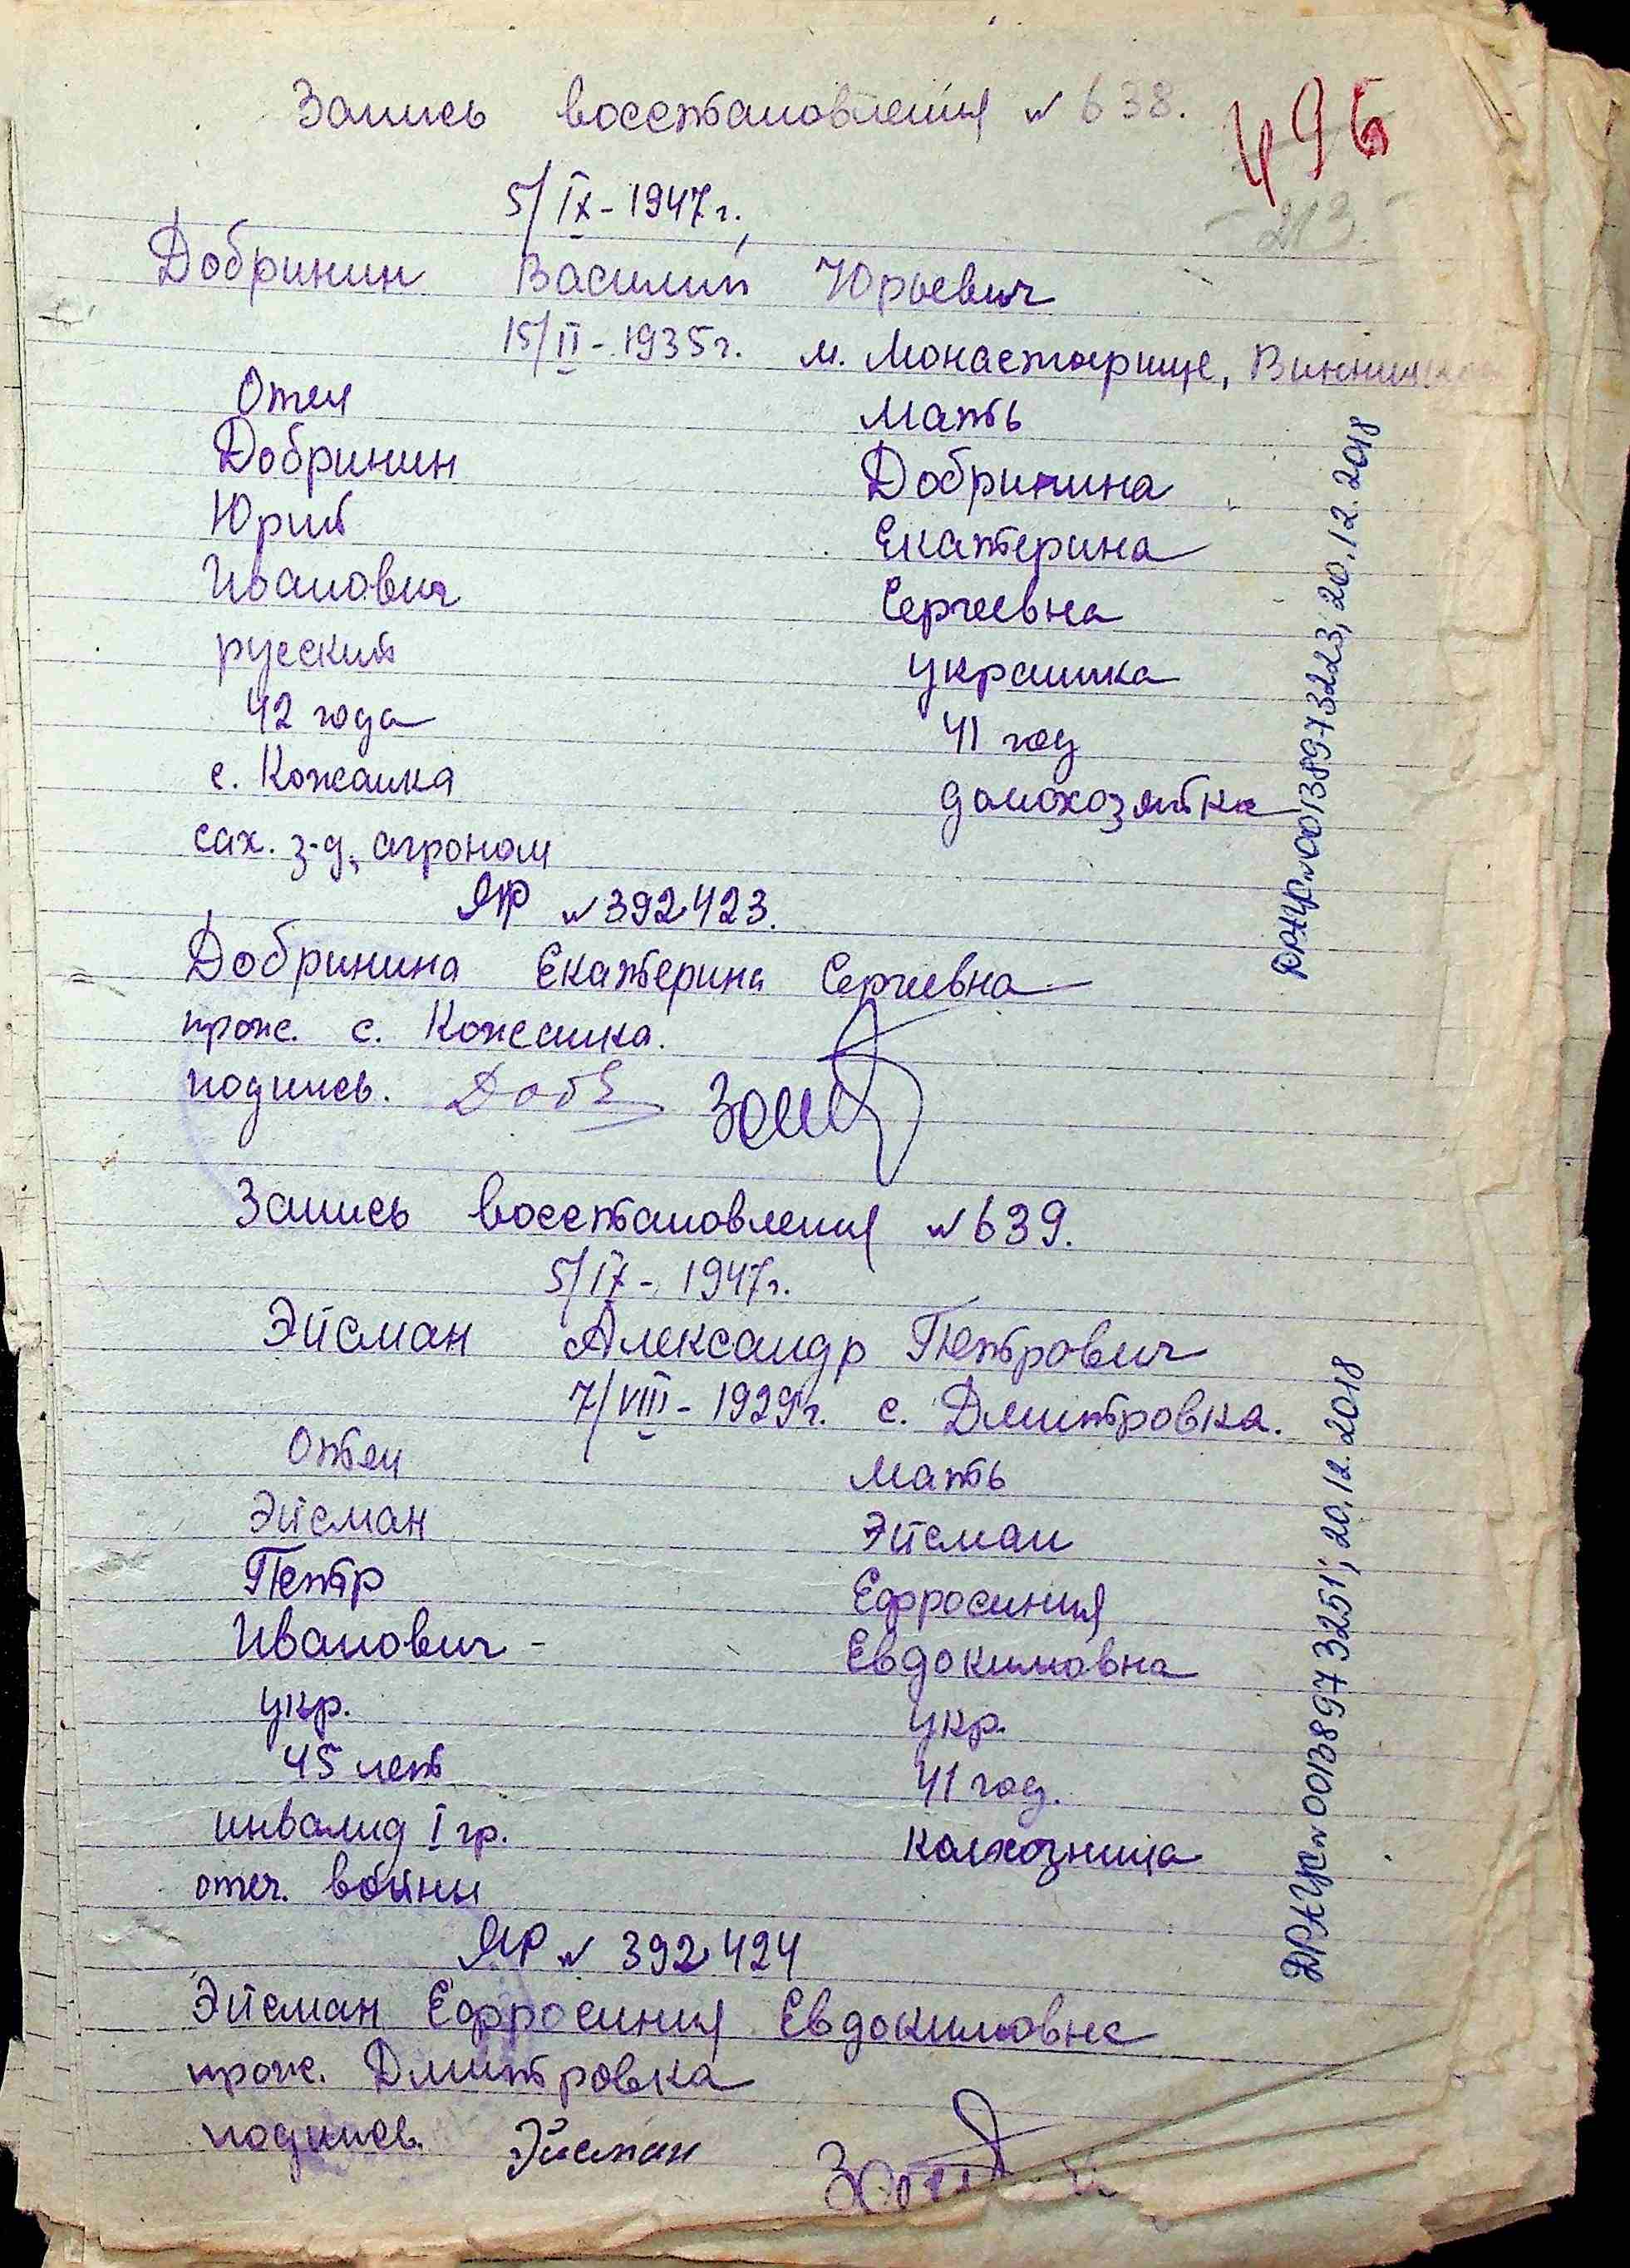 Запись восстановления № 638.
496
213.
5/IX - 1947 г.,
Добринин Василий Юрьевич
15/II - 1935 г. м. Монастырище, Винницкой
Отец Мать
Добринин Добринина
Юрий Екатерина
Иванович Сергеевна
русский украинка
42 года 41 год
с. Кожанка домохозяйка
сах. з-д, агроном
ЯР № 392423.
Добринина Екатерина Сергеевна
прож. с. Кожанка.
подпись.
ДРАЦС № 00138973223; 20.12.2018
Запись восстановления № 639.
5/IX - 1947 г.
Эйсман Александр Петрович
7/VIII - 1929 г. с. Дмитровка.
Отец Мать
Эйсман Эйсман
Петр Ефросиния
Иванович - Евдокимовна
укр. укр.
45 лет 41 год.
инвалид I гр. колхозница
отеч. войны
ЯР № 392424
Эйсман Ефросиния Евдокимовна
прож. Дмитровка
подпись. Эйсман
ДРАЦС № 00138973251; 20.12.2018